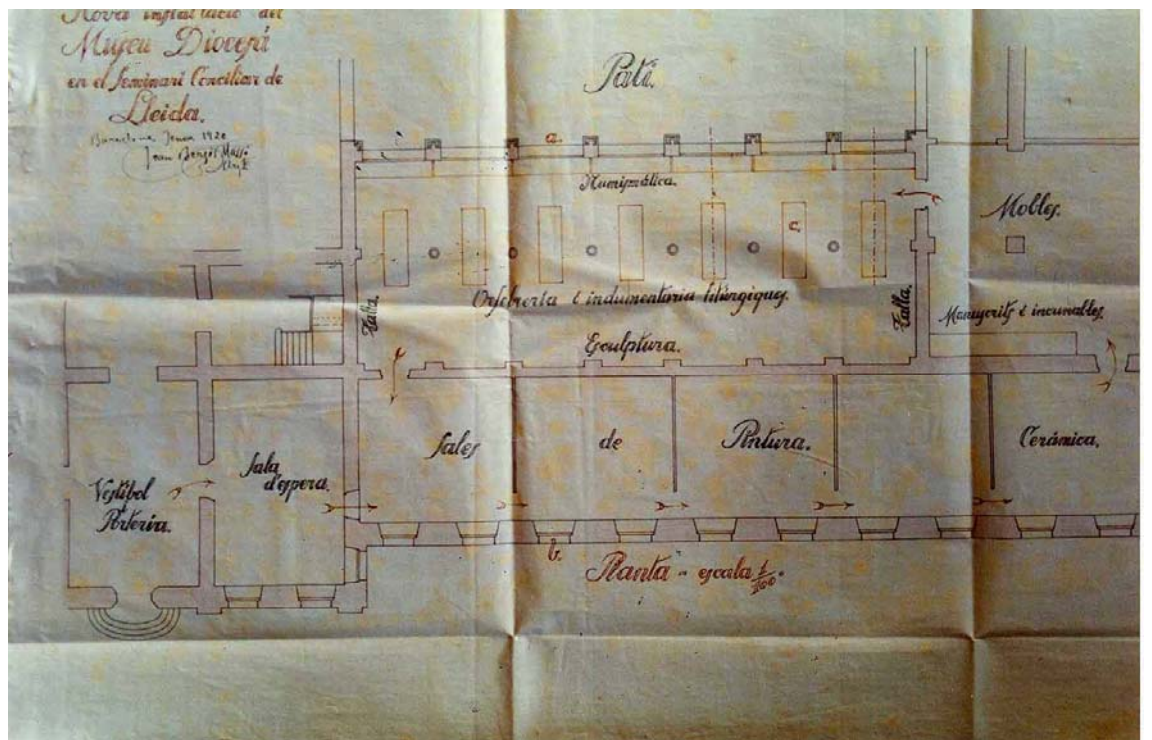 Nova instal·lació del
Museu Diocesá
en el Seminari Conciliar de
Lleida.
Barcelona Jener 1920
Joan Bergós Massó
Arqte
Pati.
a.
Numismática.
Mobles.
c.
Talla.
Orfebreria é indumentaria litúrgiques.
Talla.
Manuscrits é incunables.
Esculptura.
Sales de Pintura.
Cerámica.
Sala
d'espera.
Vestíbol
Porteria.
b.
Planta - escala 1/100.